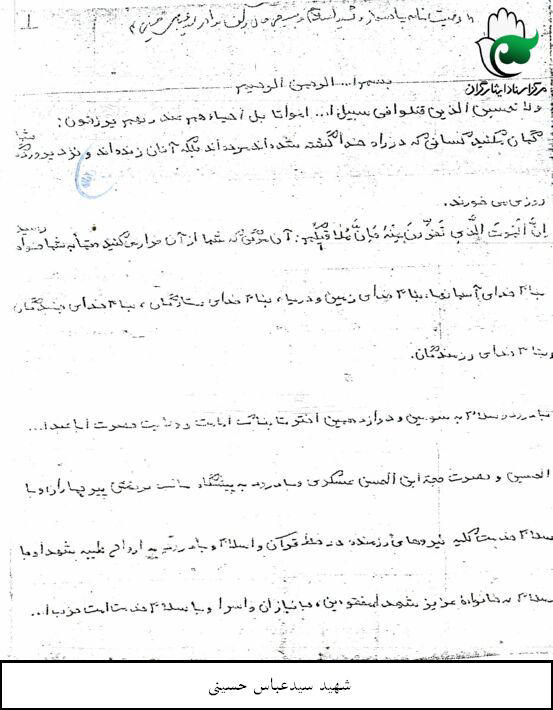 1
مرکز اسناد ایثارگران
وصیت نامه پاسدار شهید اسلام
بسم ا... الرحمن الرحیم
ولا تحسبن الذین قتلوا فی سبیل ا... امواتا بل احیاء عند ربهم یرزقون:
گمان مکنید کسانی که در راه خدا کشته شده اند مرده اند بلکه آنان زنده اند و نزد پروردگار شما
روزی می خورند.
اِنَّ المَوتَ الَّذی تَفِرّونَ مِنهُ فَاِنَّهُ مُلاقیکُم: آن مرگی که شما از آن فرار می کنید حتما به شما خواهد رسید
بنام خدای آسمانها، بنام خدای زمین و دریا، بنام خدای ستارگان، بنام خدای
بنام خدای رزمندگان.
با درود و سلام به سومین و دوازدهمین اختر تابناک امامت و ولایت حضرت اباعبدا...
الحسین و حضرت حجة ابن الحسن عسکری و با درود به پیشگاه پیر جماران و با
سلام خدمت کلیه نیروهای رزمنده در خط قرآن و اسلام و با درود به ارواح طیبه شهدا و با
سلام به خانواده عزیز شهدا، مفقودین، جانبازان و اسرا و با سلام خدمت امت حزب ا...
شهید سیدعباس حسینی